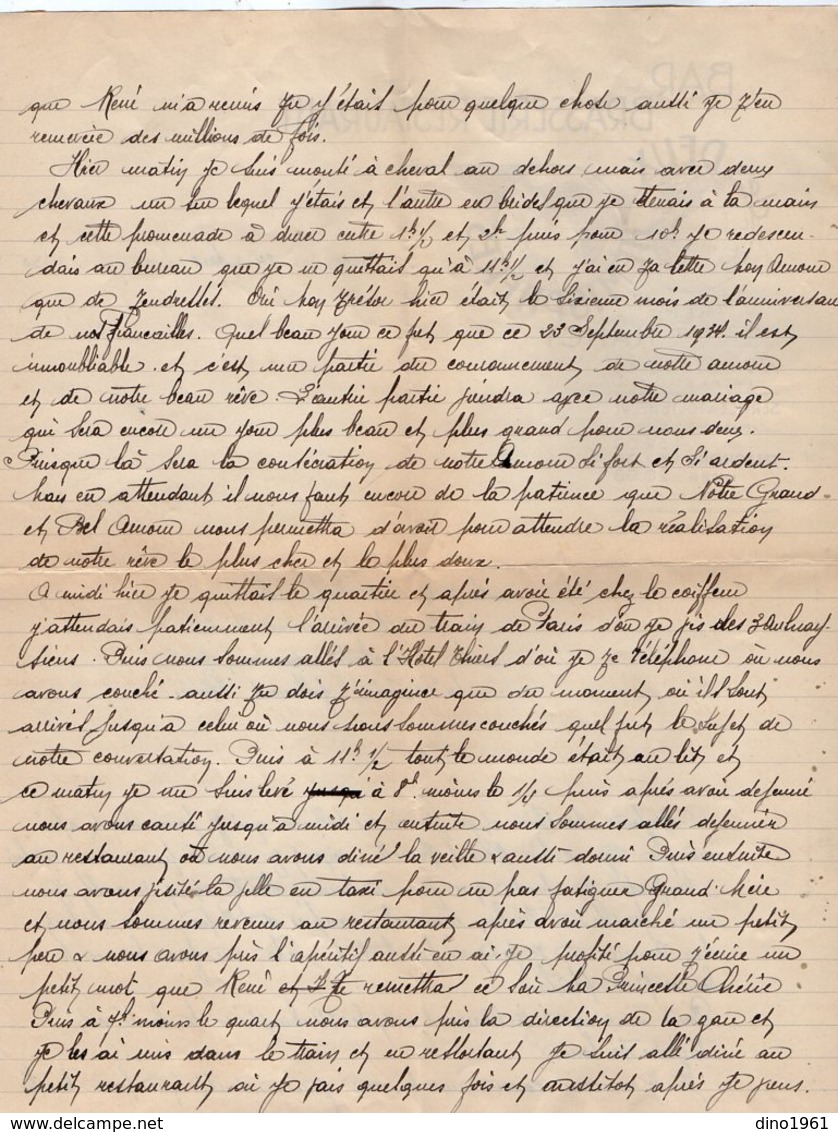 que René m'a remis tu y était pour quelque chose aussi je t'en
remercie des millions de fois.
Hier matin je suis monté à cheval au dehors mais avec deux
chevaux un sur lequel j'étais et l'autre en bridel que je tenais à la main
et cette promenade à durer entre 1h1/2 et 2h puis pour 10h je redescen-
dais au bureau que je ne quittais qu'à 11h1/2 et j'ai eu ta lettre mon Amour
que de tendresses. Oui mon trésor hier était le sixieme mois de l'anniversaire
de nos Fiancailles. Quel beau jour ce fut que ce 23 Septembre 1934. il est
innoubliable. et c'est une partie du couronnement de notre amour
et de notre beau rêve. L'autre partie viendra avec notre mariage
qui sera encore un jour plus beau et plus grand pour nous deux.
Puisque là sera la consécration de notre Amour si fort et si ardent.
Mais en attendant il nous faut encore de la patience que Notre Grand-
et Bel Amour nous permettra d'avoir pour attendre la réalisation
de notre rêve le plus cher et le plus doux.
A midi hier je quittais le quartier et après avoir été chez le coiffeur
j'attendais patiemment l'arrivée du train de Paris d'où je vis les 3 Aulnay-
siens. Puis nous sommes allés à l'Hôtel Thiers d'où je te téléphone où nous
avons couché. aussi tu dois t'imaginer que du moment où ils sont
arrivés jusqu'a celui où nous nous sommes couchés quel fut le sujet de
notre conversation. Puis à 11h 1/2 tout le monde était au lit et
ce matin je me suis levé jusqu' à 8h moins le 1/4 puis après avoir dejeuné
nous avons causé jusqu'à midi et ensuite nous sommes allés dejeuner
au restaurant où nous avons diné la veille & aussi dormi Puis ensuite
nous avons visité la ville en taxi pour ne pas fatiguer Grand-Mère
et nous sommes revenus au restaurant après avoir marché un petit
peu & nous avons pris l'apéritif aussi en ai-je profité pour t'écrire un
petit mot que René te remettra ce soir Ma Princesse Chérie
Puis à 7h moins le quart nous avons pris la direction de la gare et
je les ai mis dans le train et en ressortant je suis allé diné au
petit restaurant où je vais quelques fois et aussitot après je viens.
dino1961